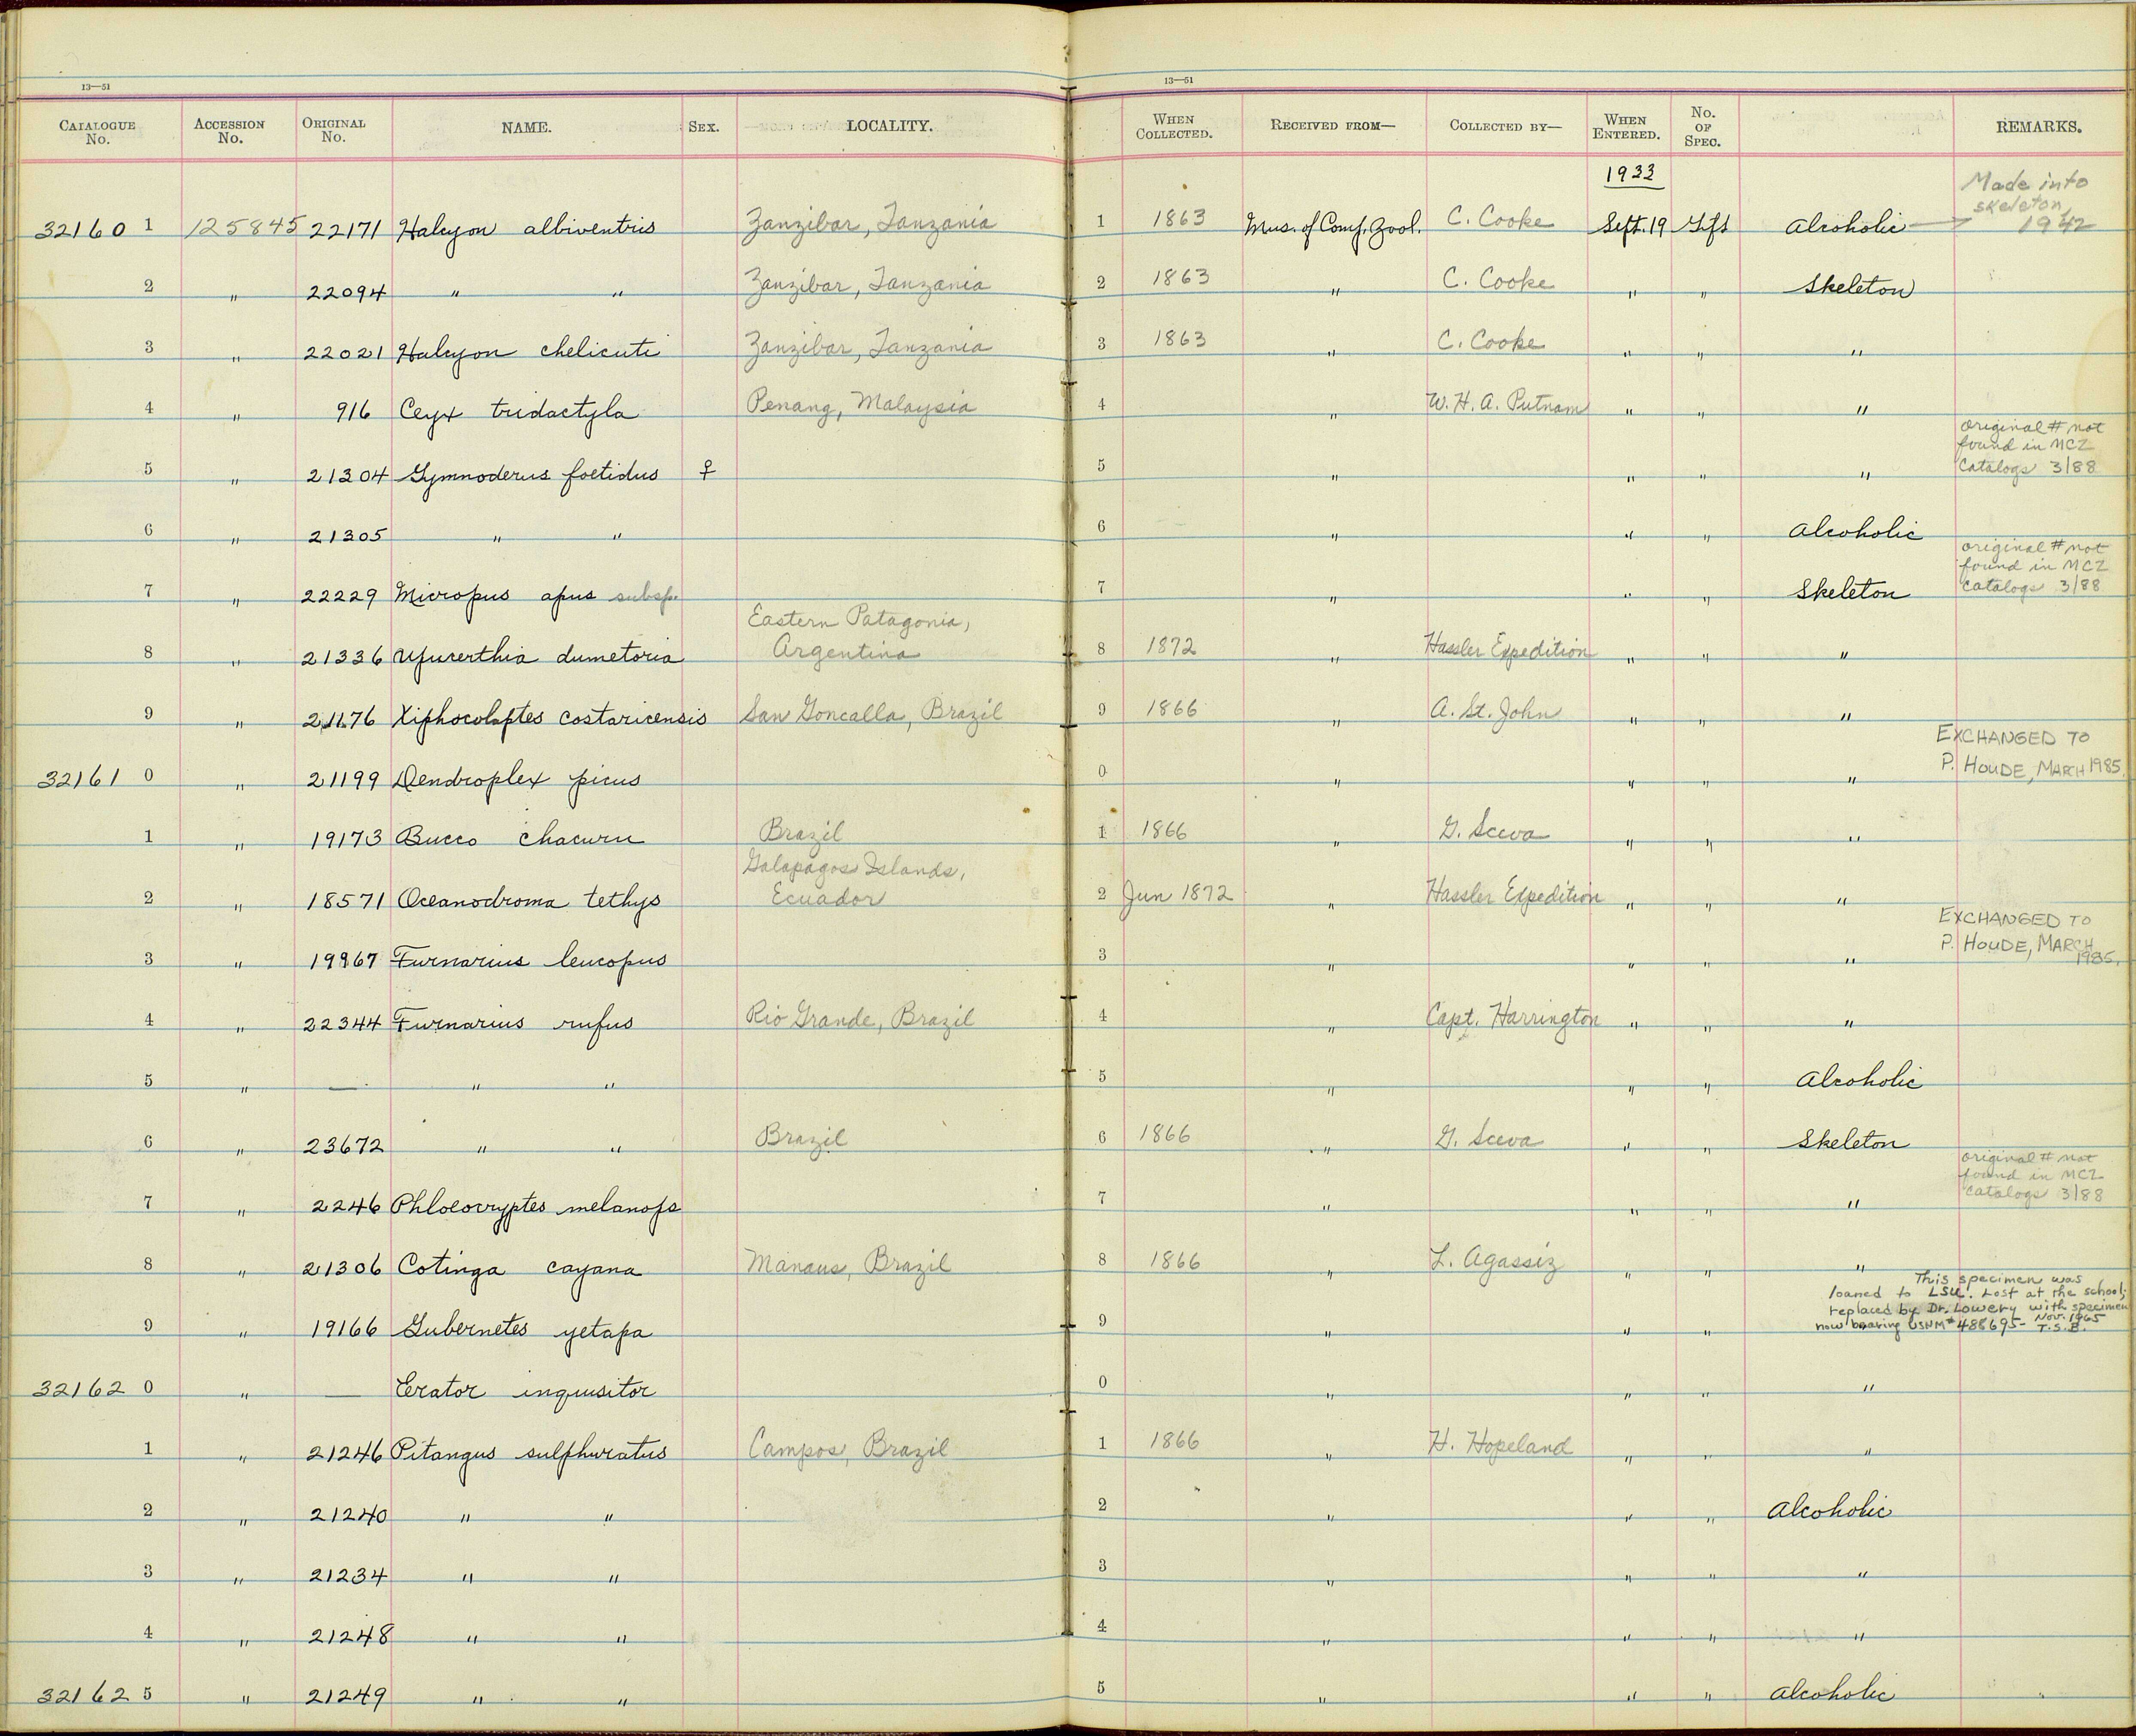 13—51 13—51
CATALOGUE No. ACCESSION No. ORIGINAL No. NAME. SEX. LOCALITY. WHEN COLLECTED. RECEIVED FROM— COLLECTED BY— WHEN ENTERED. No. OF SPEC. REMARKS.
1933
Made into
skeleton,
1942
32160 1 125845 22171 Halcyon albiventris Zanzibar, Tanzania 1 1863 Mus. of Comp. Zool. C. Cooke Sept. 19 Gift Alcoholic
2 " 22094 " " Zanzibar, Tanzania 2 1863 " C. Cooke " " Skeleton
3 " 22021 Halcyon chelicuti Zanzibar, Tanzania 3 1863 " C. Cooke " " "
4 " 916 Ceyx tridactyla Penang, Malaysia 4 " W. H. A. Putnam " " "
original # not
found in MCZ
catalogs 3/88
5 " 21304 Gymnoderus foetidus ♀ 5 " " " "
6 " 21305 " " 6 " " " Alcoholic
original # not
found in MCZ
catalogs 3/88
7 " 22229 Micropus apus subsp. 7 " " " Skeleton
Eastern Patagonia,
8 " 21336 Upucerthia dumetoria Argentina 8 1872 " Hassler Expedition " " "
9 " 21176 Xiphocolaptes costaricensis San Goncalla, Brazil 9 1866 " A. St. John " " "
EXCHANGED TO
P. HOUDE, MARCH 1985.
32161 0 " 21199 Dendroplex picus 0 " " " "
1 " 19173 Bucco chacuru Brazil 1 1866 " G. Sceva " " "
Galapagos Islands,
2 " 18571 Oceanodroma tethys Ecuador 2 Jun 1872 " Hassler Expedition " " "
EXCHANGED TO
P. HOUDE, MARCH
1985.
3 " 19967 Furnarius leucopus 3 " " " "
4 " 22344 Furnarius rufus Rio Grande, Brazil 4 " Capt. Harrington " " "
5 " — " " 5 " " " Alcoholic
6 " 23672 " " Brazil 6 1866 " G. Sceva " " Skeleton
original # not
found in MCZ
catalogs 3/88
7 " 2246 Phloeocryptes melanops 7 " " " "
8 " 21306 Cotinga cayana Manaus, Brazil 8 1866 " L. Agassiz " " "
This specimen was
loaned to LSU. Lost at the school;
replaced by Dr. Lowery with specimen
now bearing USNM # 488695- Nov. 1965
T.S.B.
9 " 19166 Gubernetes yetapa 9 " " "
32162 0 " — Erator inquisitor 0 " " " "
1 " 21246 Pitangus sulphuratus Campos, Brazil 1 1866 " H. Hopeland " " "
2 " 21240 " " 2 " " " Alcoholic
3 " 21234 " " 3 " " " "
4 " 21248 " " 4 " " " "
32162 5 " 21249 " " 5 " " " Alcoholic